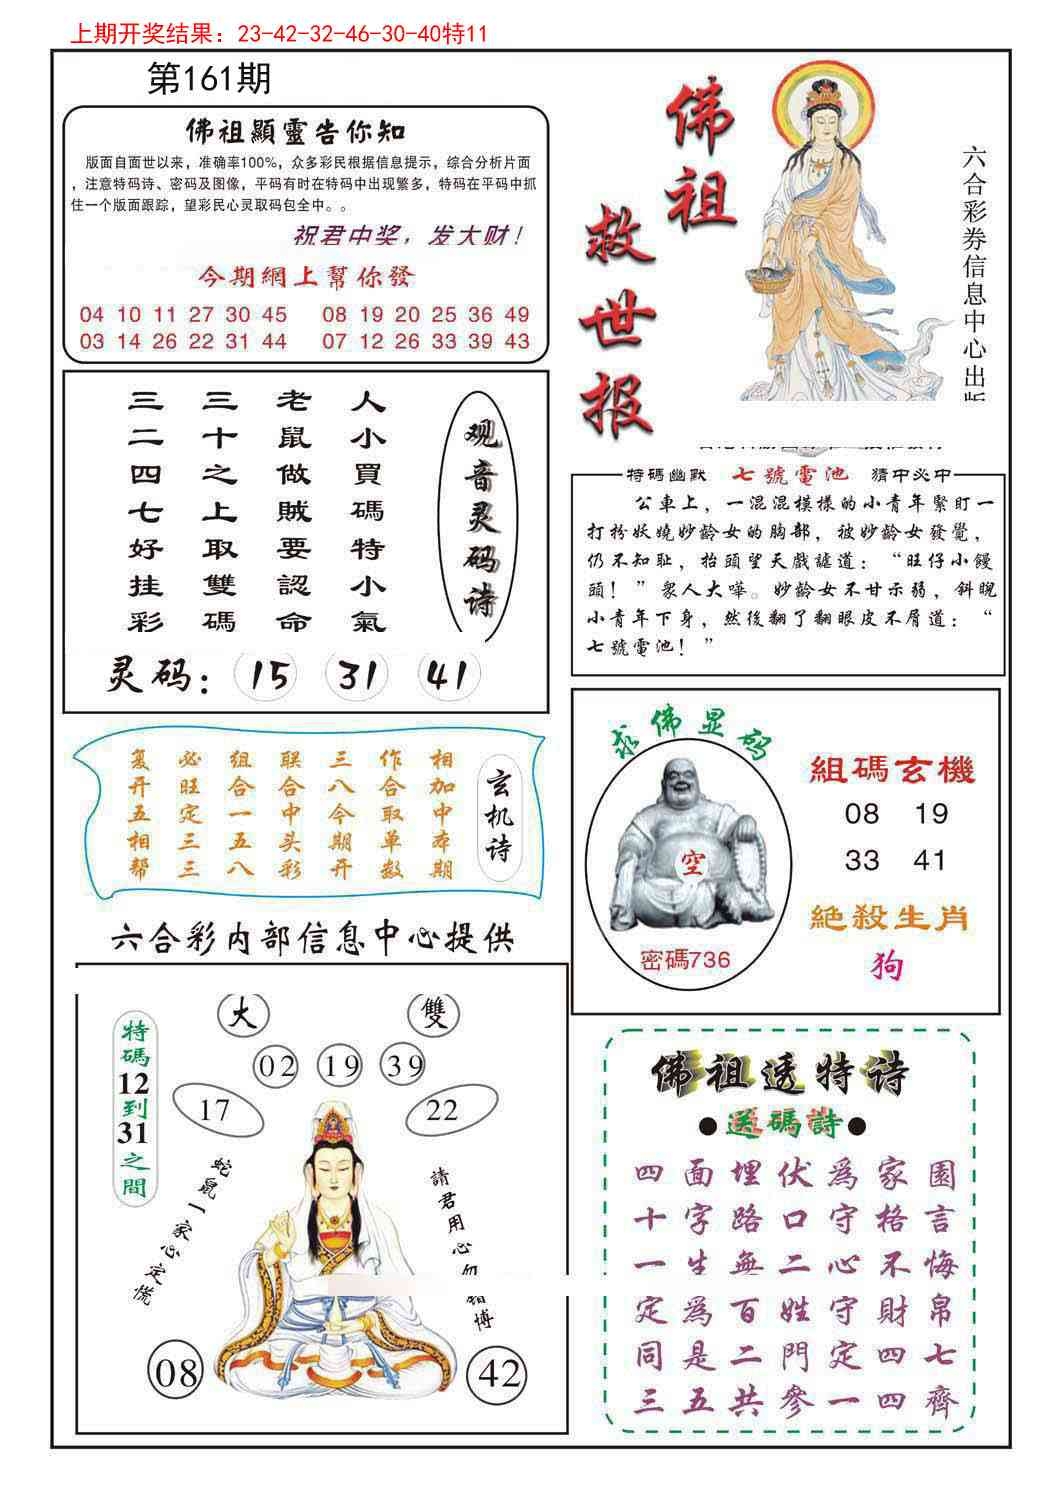 上期开奖结果：23-42-32-46-30-40特11
第161期
佛祖顯靈告你知
版面自面世以来，准确率100%，众多彩民根据信息提示，综合分析片面
，注意特码诗、密码及图像，平码有时在特码中出现繁多，特码在平码中抓
住一个版面跟踪，望彩民心灵取码包全中。。
祝君中奖，发大财！
今期網上幫你發
04 10 11 27 30 45 08 19 20 25 36 49
03 14 26 22 31 44 07 12 26 33 39 43
佛祖
救世报
六合彩券信息中心出版
观音灵码诗
人小買碼特小氣
老鼠做賊要認命
三十之上取雙碼
三二四七好挂彩
灵码：15 31 41
特码幽默 七號電池 猜中必中
公車上，一混混模樣的小青年緊盯一
打扮妖嬈妙齡女的胸部，被妙齡女發覺，
仍不知耻，抬頭望天戲謔道：“旺仔小饅
頭！”衆人大嘩。妙齡女不甘示弱，斜睨
小青年下身，然後翻了翻眼皮不屑道：“
七號電池！”
玄机诗
相加中本期
作合取单数
三八今期开
联合中头彩
组合一五八
必旺定三三
复开五相帮
求佛显码
空
密碼736
組碼玄機
08 19
33 41
絕殺生肖
狗
六合彩内部信息中心提供
大 雙
02 19 39
17 22
特碼12到31之間
蛇鼠一家心定慌
請君用心
博
08 42
佛祖透特诗
●送碼詩●
四面埋伏爲家園
十字路口守格言
一生無二心不悔
定爲百姓守財帛
同是二門定四七
三五共參一四齊